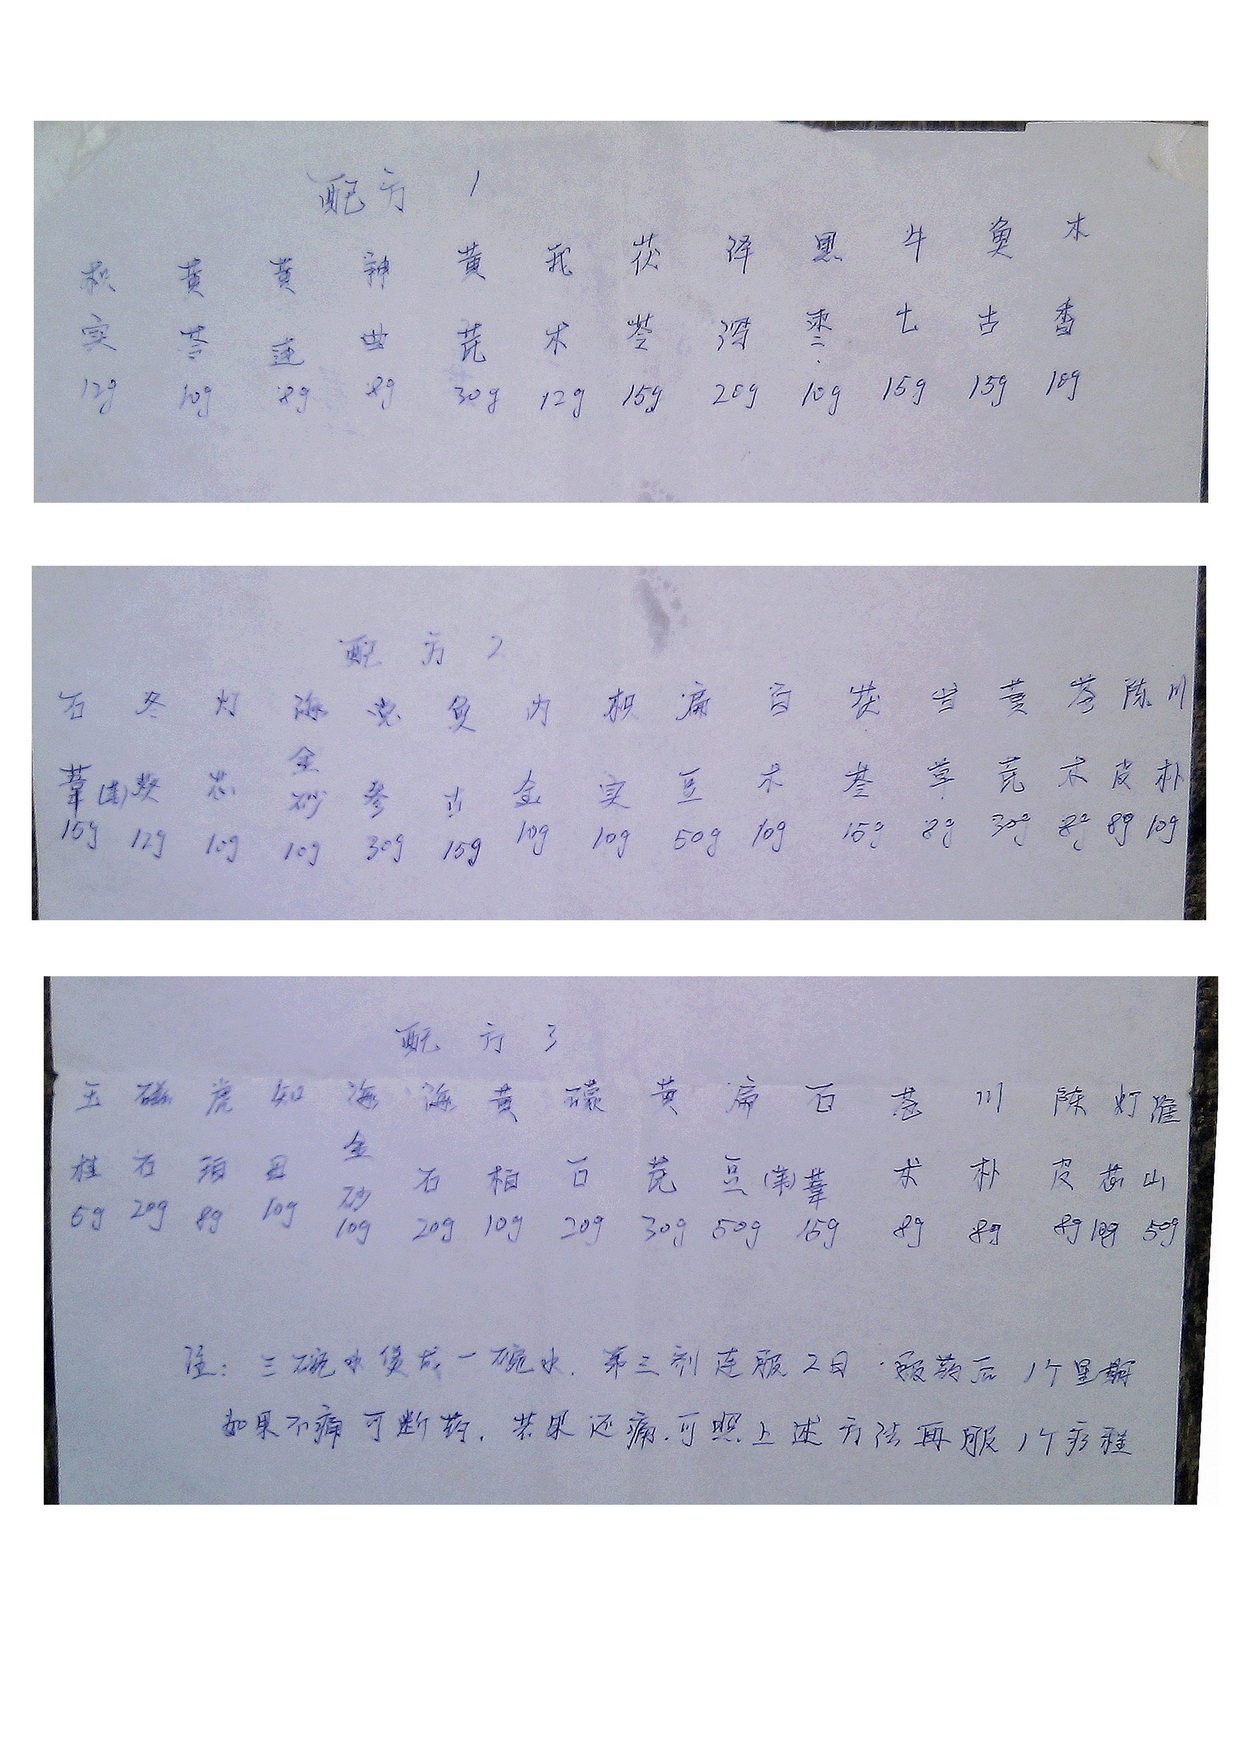 配方 1
枳 黄 黄 神 黄 莪 茯 泽 黑 牛 鱼 木
实 芩 连 曲 芪 术 苓 泻 枣 七 古 香
12g 10g 8g 8g 30g 12g 15g 20g 10g 15g 15g 10g
配方 2
石 冬 灯 海 党 鱼 内 枳 扁 白 茯 甘 黄 苍 陈 川
苇 葵 芯 金砂 参 古 金 实 豆 术 苓 草 芪 术 皮 朴
15g 12g 10g 10g 30g 15g 10g 10g 50g 10g 15g 8g 30g 8g 8g 10g
配方 3
玉 磁 虎 知 海 海 黄 礞 黄 扁 石 苍 川 陈 灯 淮
桂 石 珀 母 金砂 石 柏 石 芪 豆 苇 术 朴 皮 芯 山
5g 20g 8g 10g 10g 20g 10g 20g 30g 50g 15g 8g 8g 8g 10g 50g
注：三碗水煲成一碗水．第三剂连服2日．服药后1个星期
如果不痛可断药．若果还痛．可照上述方法再服1个疗程